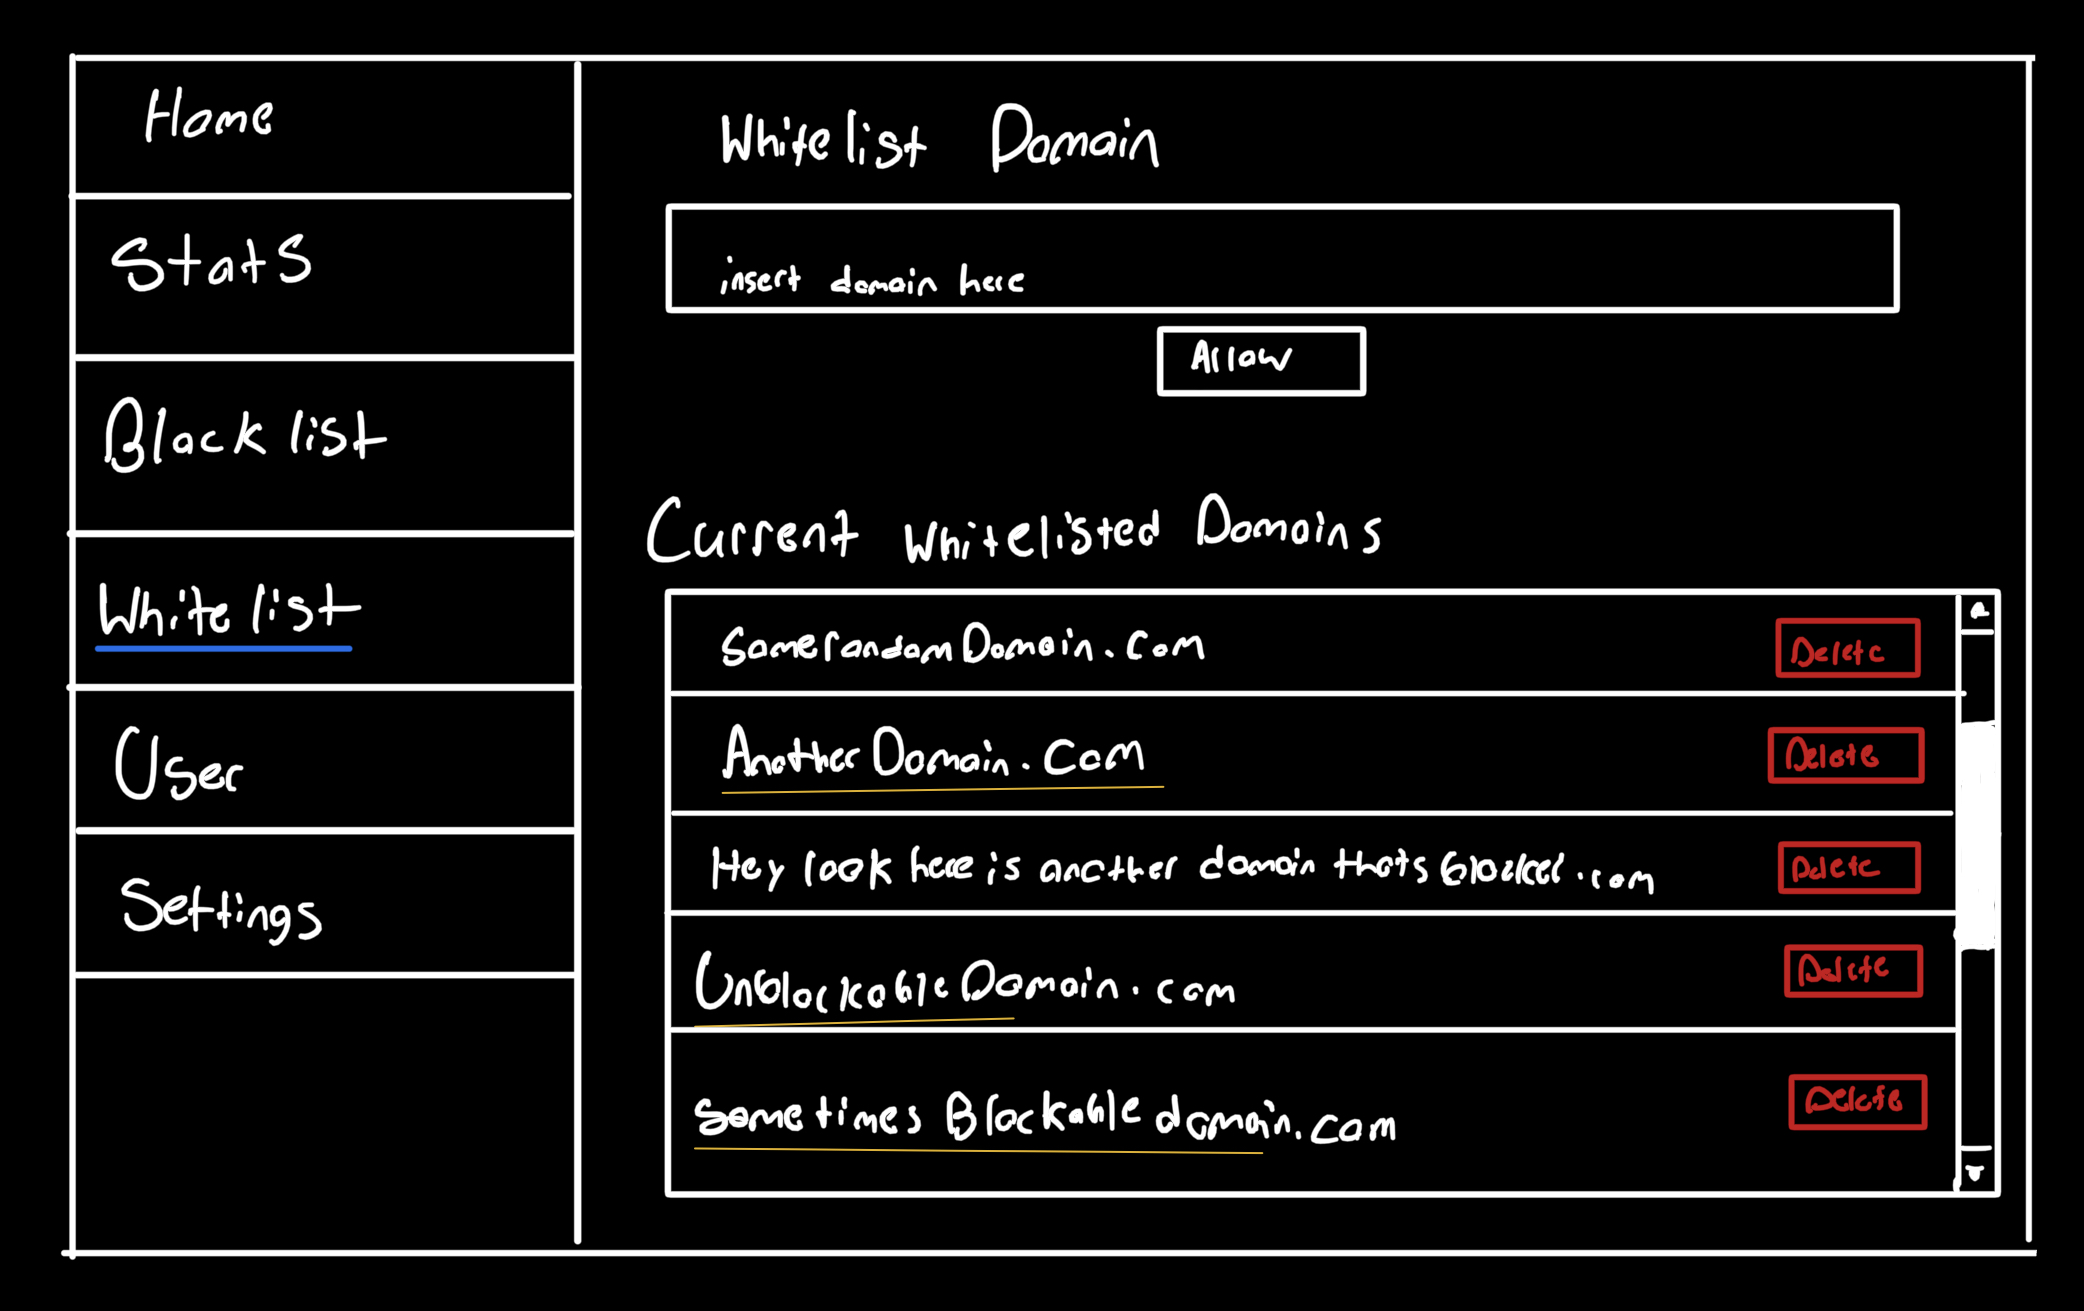 Home
Stats
Black list
White list
User
Settings
Whitelist Domain
insert domain here
Allow
Current Whitelisted Domains
somerandomDomain.com
Delete
AnotherDomain.com
Delete
Hey look here is another domain thats blocked.com
Delete
UnblockableDomain.com
Delete
sometimes Blockable domain.com
Delete